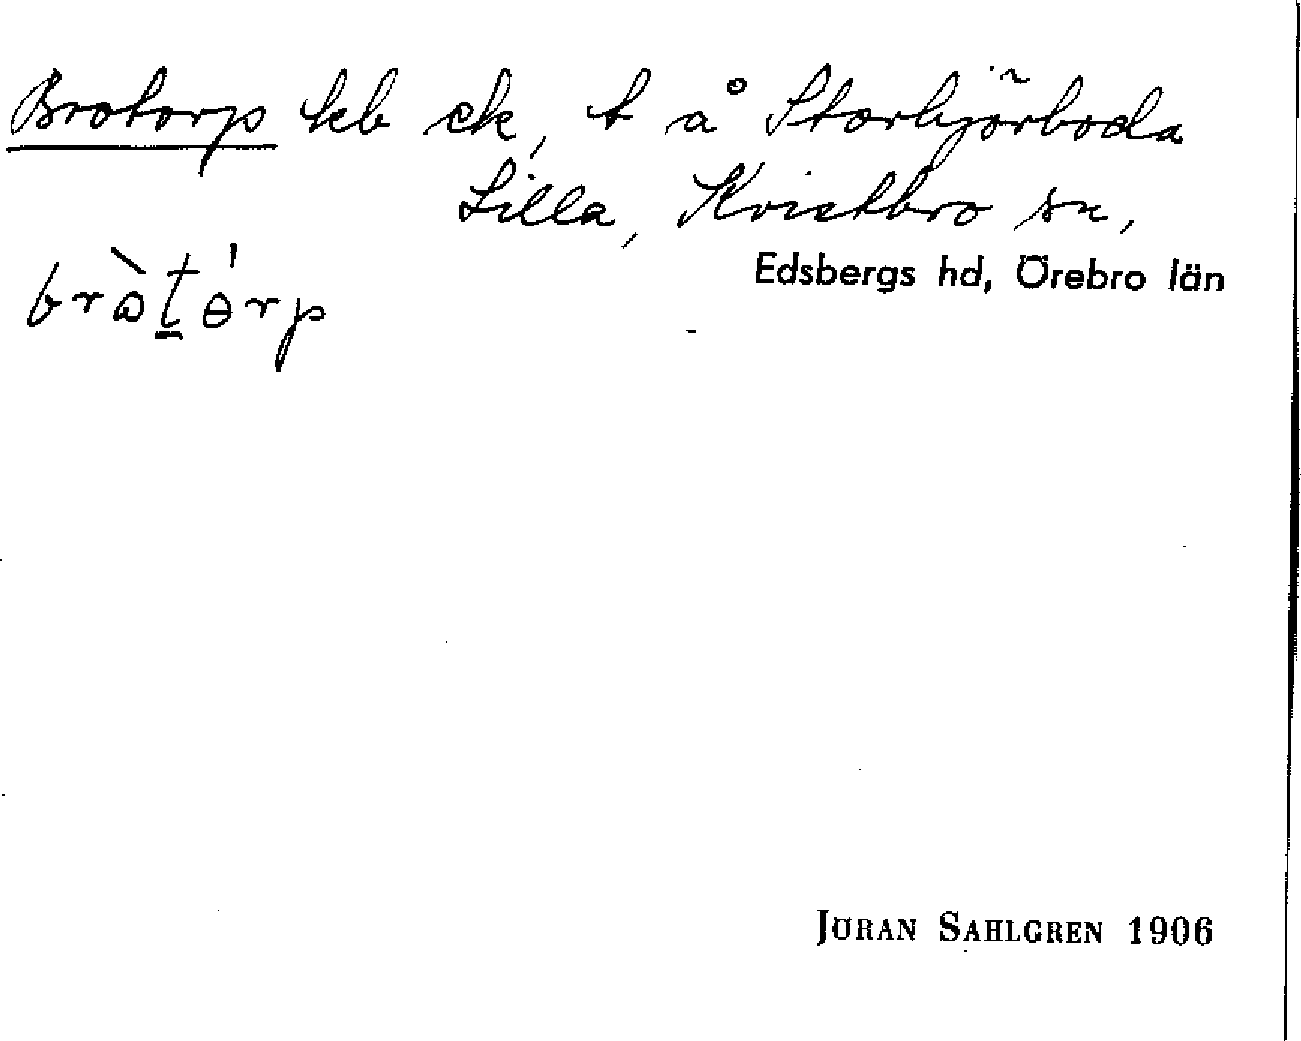 Brotorp kb ek, t å Storbjörboda
Lilla, Kvistbro sn,
Edsbergs hd, Örebro län
brὼt̲ɵ́rp
JÖRAN SAHLGREN 1906